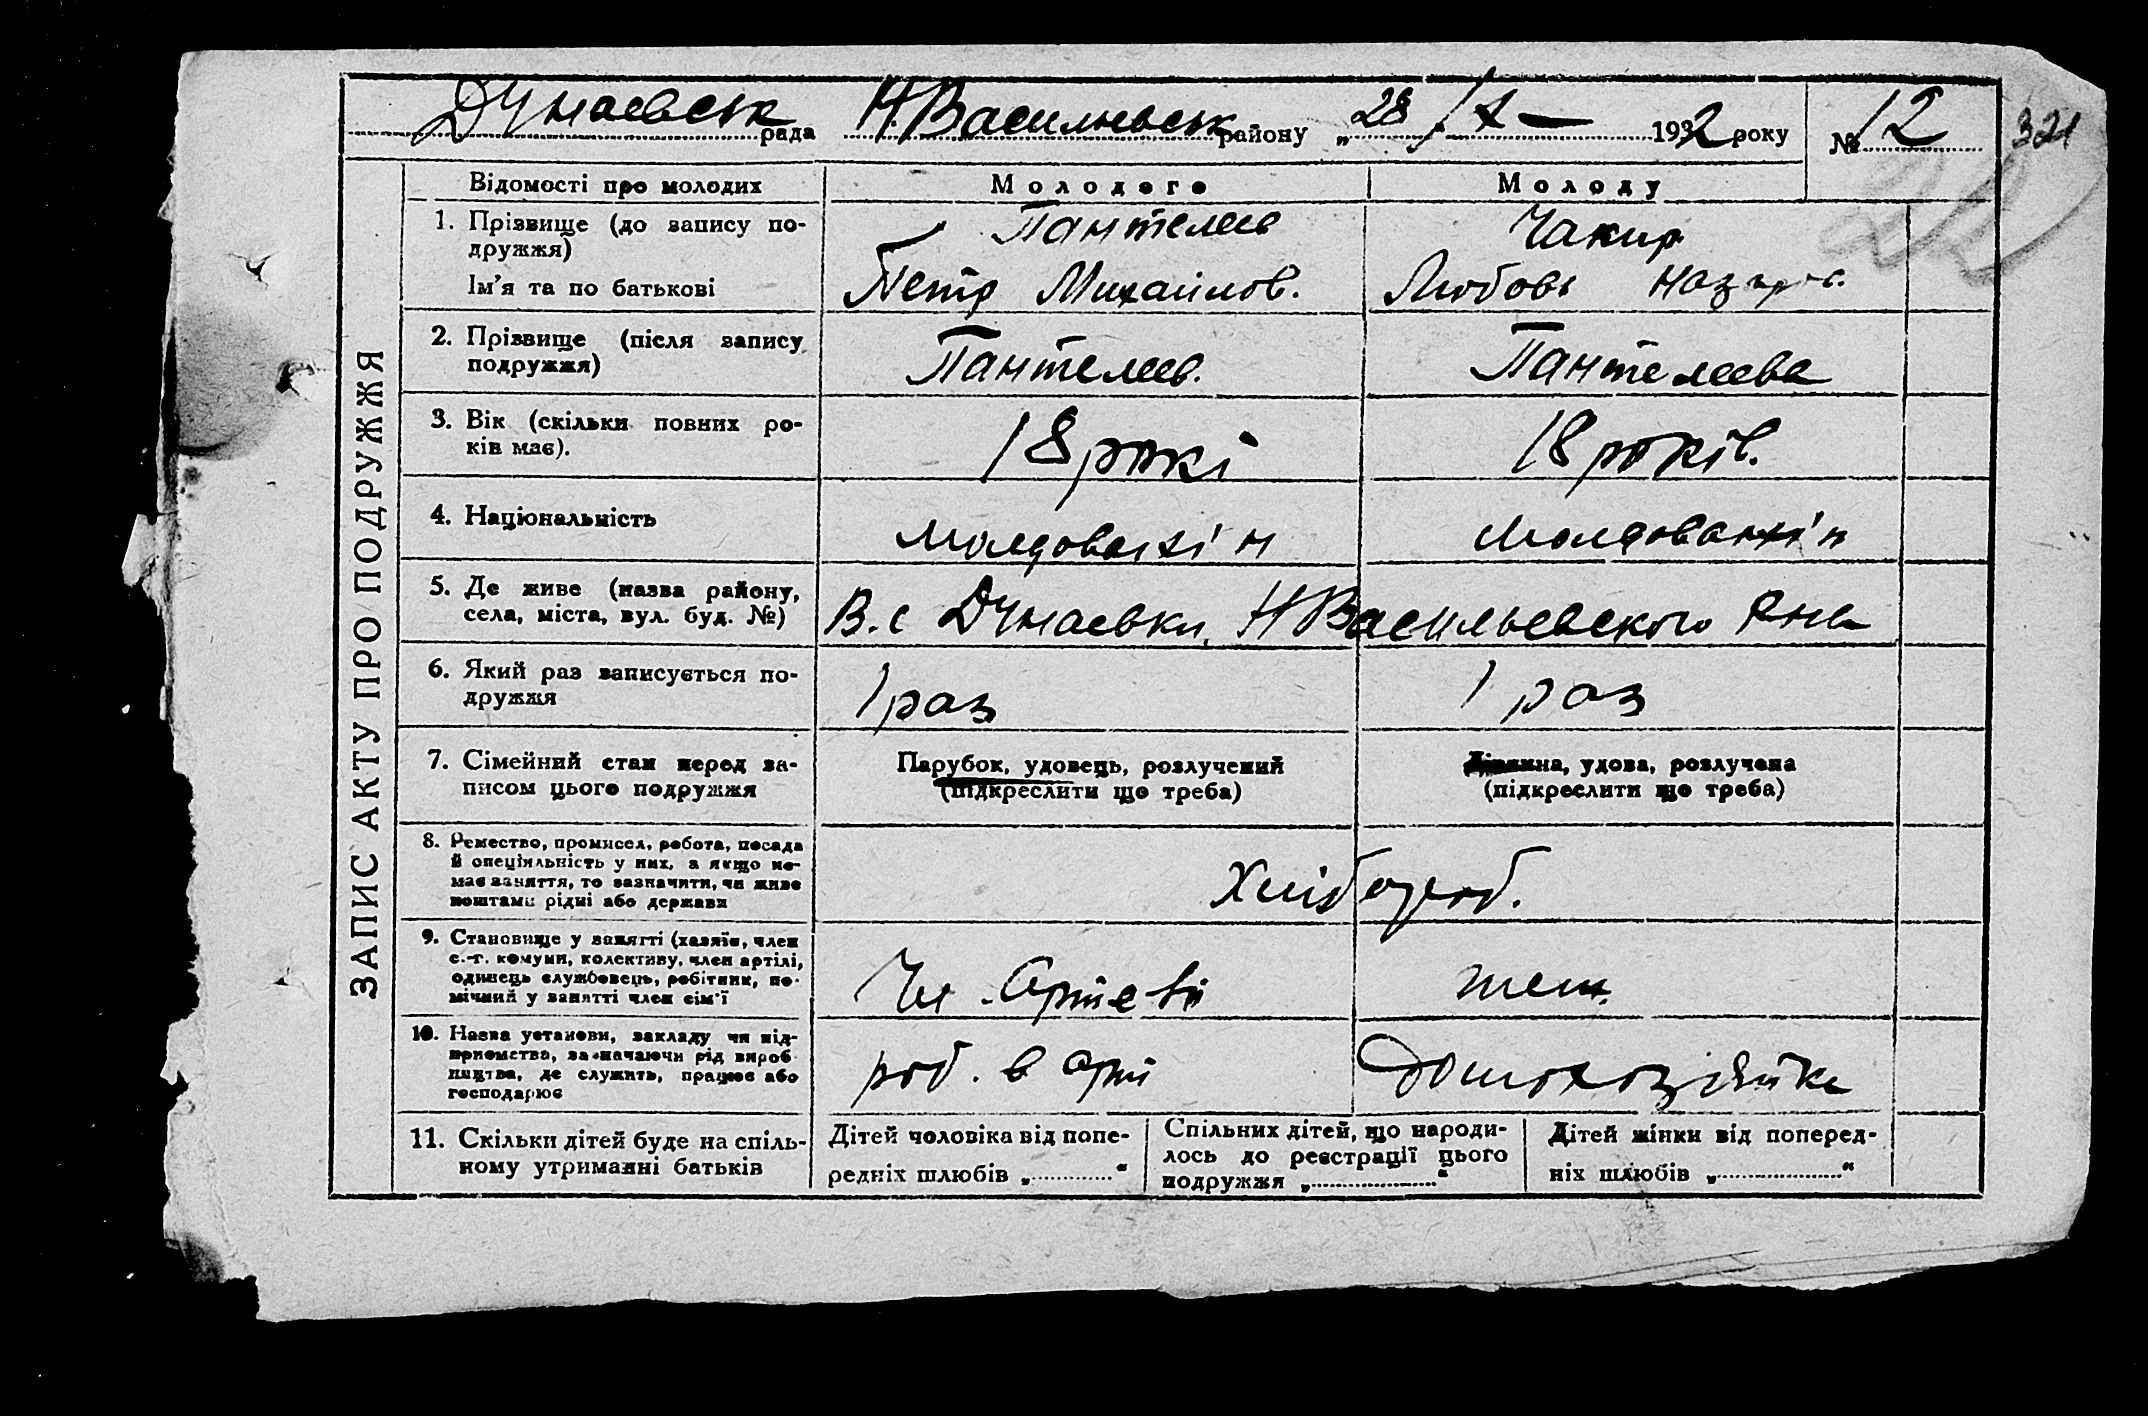 Дунаевськ рада Н Васильевськ району „28 / X — 1932 року № 12
321
22
ЗАПИС АКТУ ПРО ПОДРУЖЖЯ
Відомості про молодих
Молодого
Молоду
1. Прізвище (до запису по-
дружжя)
Ім'я та по батькові
Пантелеев
Петр Михайлов.
Чакир
Любовь
2. Прізвище (після запису
подружжя)
Пантелеев.
Пантелеева
3. Вік (скільки повних ро-
ків має).
18 рокі
18 років.
4. Національність
Молдованін
Молдованін
5. Де живе (назва району,
села, міста, вул. буд. №)
В.с Дунаевки, Н Васильевского
6. Який раз записується по-
дружжя
1 раз
1 раз
7. Сімейний стан перед за-
писом цього подружжя
Парубок, удовець, розлучений
(підкреслити що треба)
Дівчина, удова, розлучена
(підкреслити що треба)
8. Ремество, промисел, робота, посада
й спеціяльність у них, а якщо не-
має заняття, то зазначити, чи живе
коштами рідні або держави
Хлібороб.
9. Становище у занятті (хазяїн, член
с.-г. комуни, колективу, член артілі,
одинець службовець, робітник, по-
мічний у занятті член сім'ї
Чл.
10. Назва установи, закладу чи під-
приємства, зазначаючи рід вироб-
ництва, де служить, працює або
господарює
роб. в арт
домохозяйка
11. Скільки дітей буде на спіль-
ному утриманні батьків
Дітей чоловіка від попе-
редніх шлюбів „............“
Спільних дітей, що народи-
лось до реєстрації цього
подружжя „..................“
Дітей жінки від поперед-
ніх шлюбів „..................“